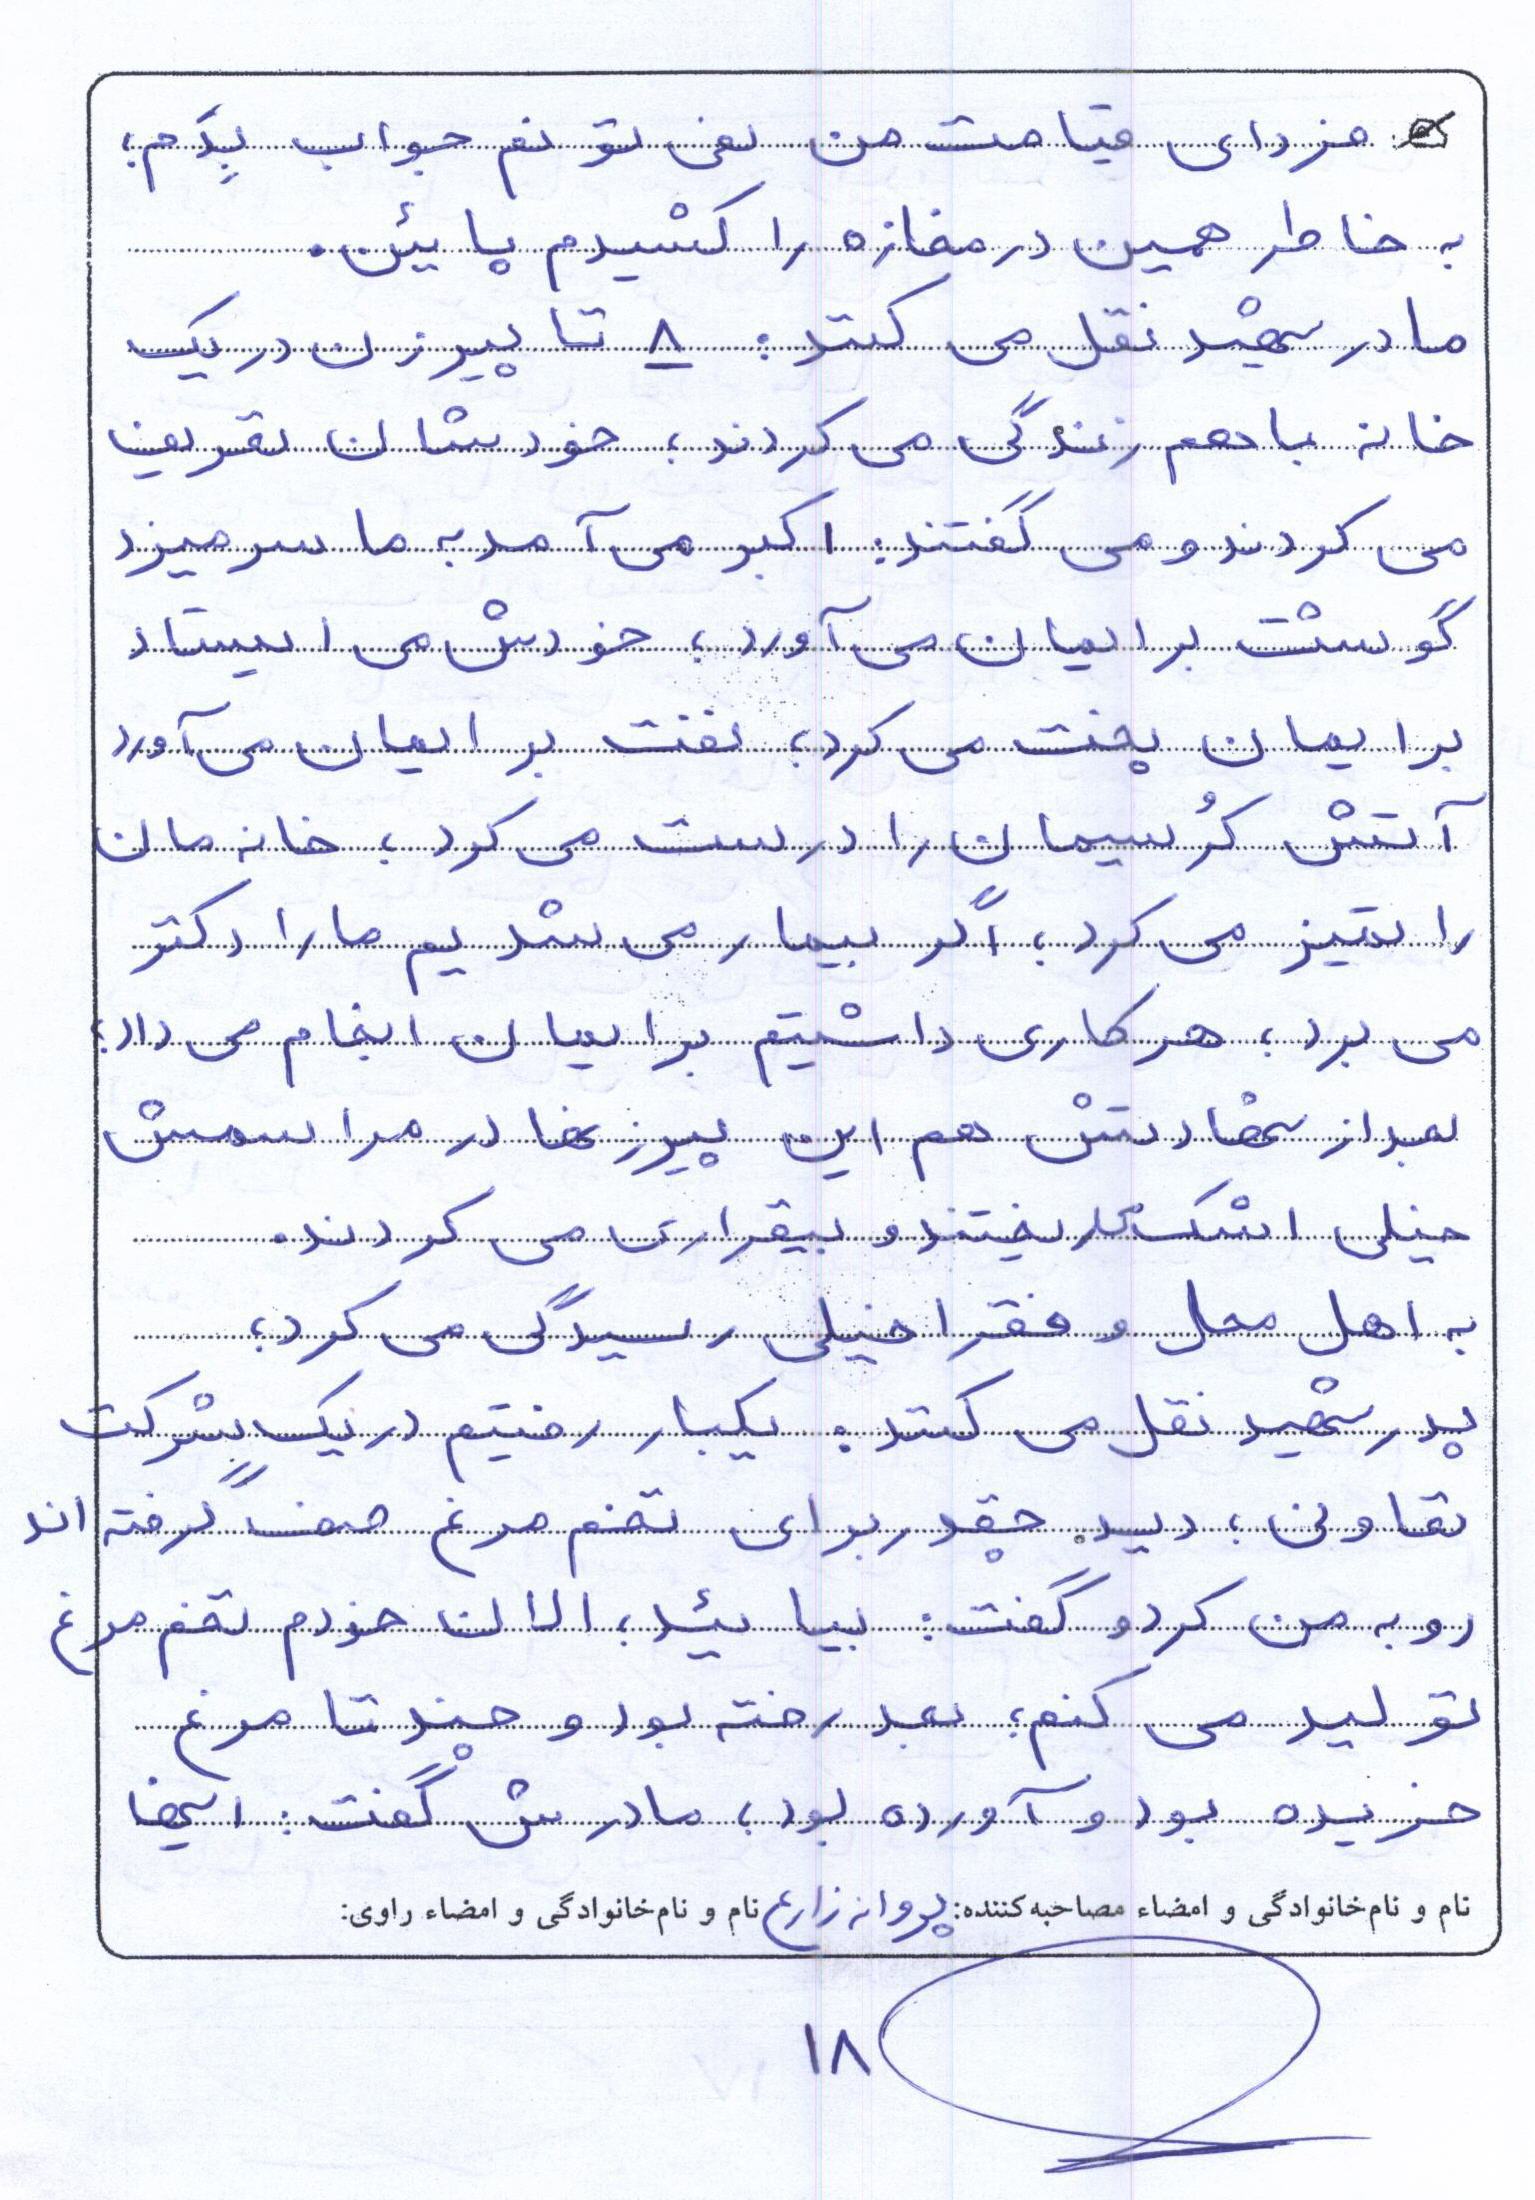 فردای قیامت من نمی تونم جواب بِدَم؛
به خاطر همین در مغازه را کشیدم پایئن.
مادر شهید نقل می کند: ۸ تا پیرزن در یک
خانه با هم زندگی می کردند؛ خودشان تعریف
می کردند و می گفتند: اکبر می آمد به ما سر میزد
گوشت برایمان می آورد؛ خودش می ایستاد
برایمان پخت می کرد؛ نفت برایمان می آورد
آتش کُرسیمان را درست می کرد؛ خانه مان
را تمیز می کرد؛ اگر بیمار می شدیم ما را دکتر
می برد؛ هر کاری داشتیم برایمان انجام می داد؛
بعد از شهادتش هم این پیرزنها در مراسمش
خیلی اشک ریختند و بیقراری می کردند.
به اهل محل و فقرا خیلی رسیدگی می کرد؛
پدر شهید نقل می کند: یکبار رفتیم در یک شرکت
تعاونی؛ دید چقدر برای تخم مرغ صف گرفته اند
رو به من کرد و گفت: بیائید، الان خودم تخم مرغ
تولید می کنم؛ بعد رفته بود و چند تا مرغ
خریده بود و آورده بود؛ مادرش گفت: اینها
نام و نام‌خانوادگی و امضاء مصاحبه‌کننده: پروانه زارع نام و نام‌خانوادگی و امضاء راوی:
۱۸